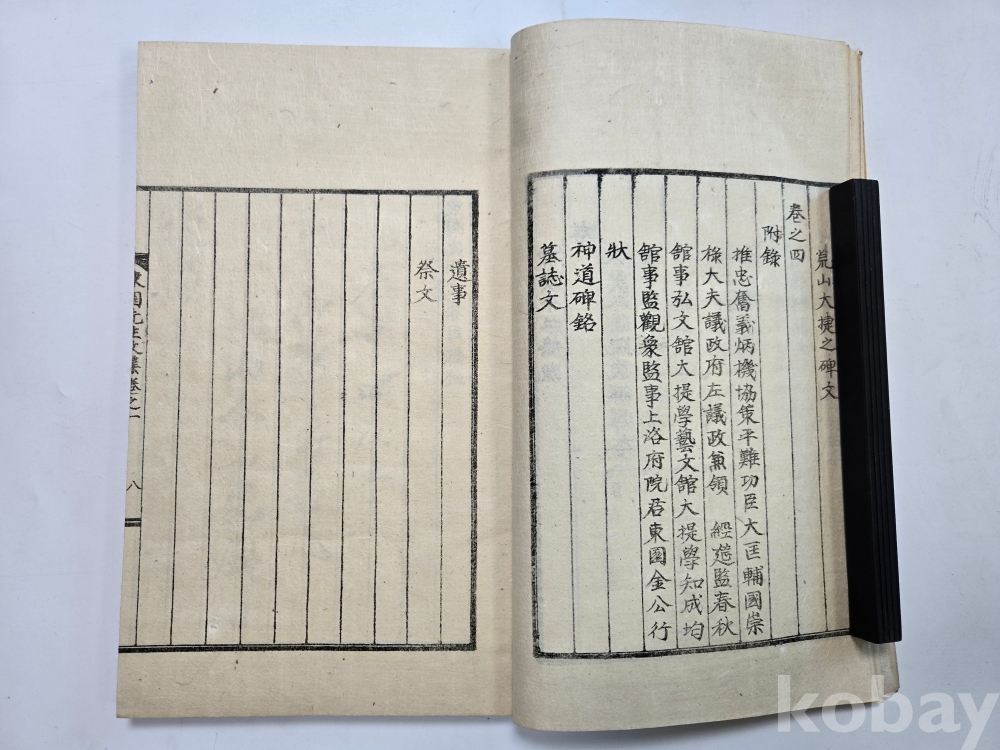 荒山大捷之碑文
卷之四
附錄
推忠奮義炳機協策平難功臣大匡輔國崇
祿大夫議政府左議政兼領 經筵監春秋
館事弘文館大提學藝文館大提學知成均
館事監觀象監事上洛府院君東園金公行
狀
神道碑銘
墓誌文
遺事
祭文
東園先生文集卷之一
八
kobay